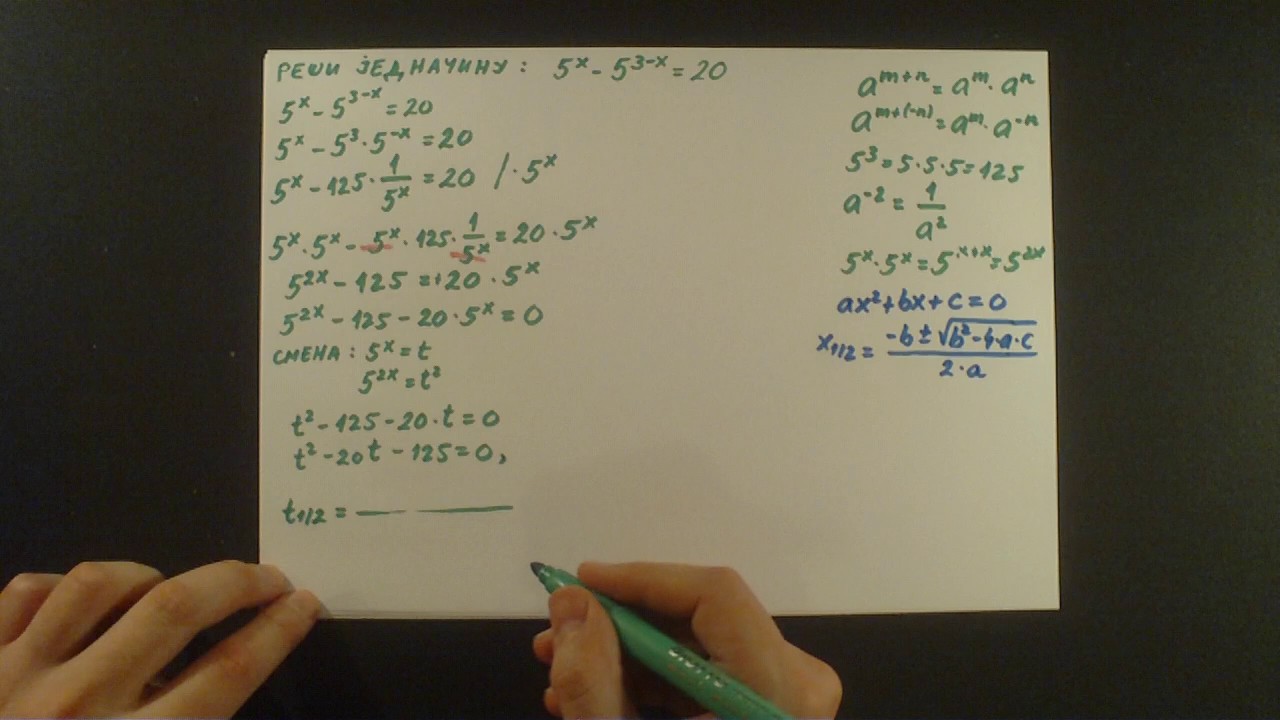 РЕШИ ЈЕДНАЧИНУ: 5^x - 5^{3-x} = 20
5^x - 5^{3-x} = 20
5^x - 5^3 · 5^{-x} = 20
5^x - 125 · \frac{1}{5^x} = 20 / · 5^x
5^x · 5^x - 5^x · 125 · \frac{1}{5^x} = 20 · 5^x
5^{2x} - 125 = +20 · 5^x
5^{2x} - 125 - 20 · 5^x = 0
СМЕНА: 5^x = t
5^{2x} = t^2
t^2 - 125 - 20 · t = 0
t^2 - 20t - 125 = 0,
t_{1/2} =
a^{m+n} = a^m · a^n
a^{m+(-n)} = a^m · a^{-n}
5^3 = 5·5·5 = 125
a^{-2} = \frac{1}{a^2}
5^x · 5^x = 5^{x+x} = 5^{2x}
ax^2 + bx + c = 0
x_{1/2} = \frac{-b ± \sqrt{b^2 - 4·a·c}}{2·a}